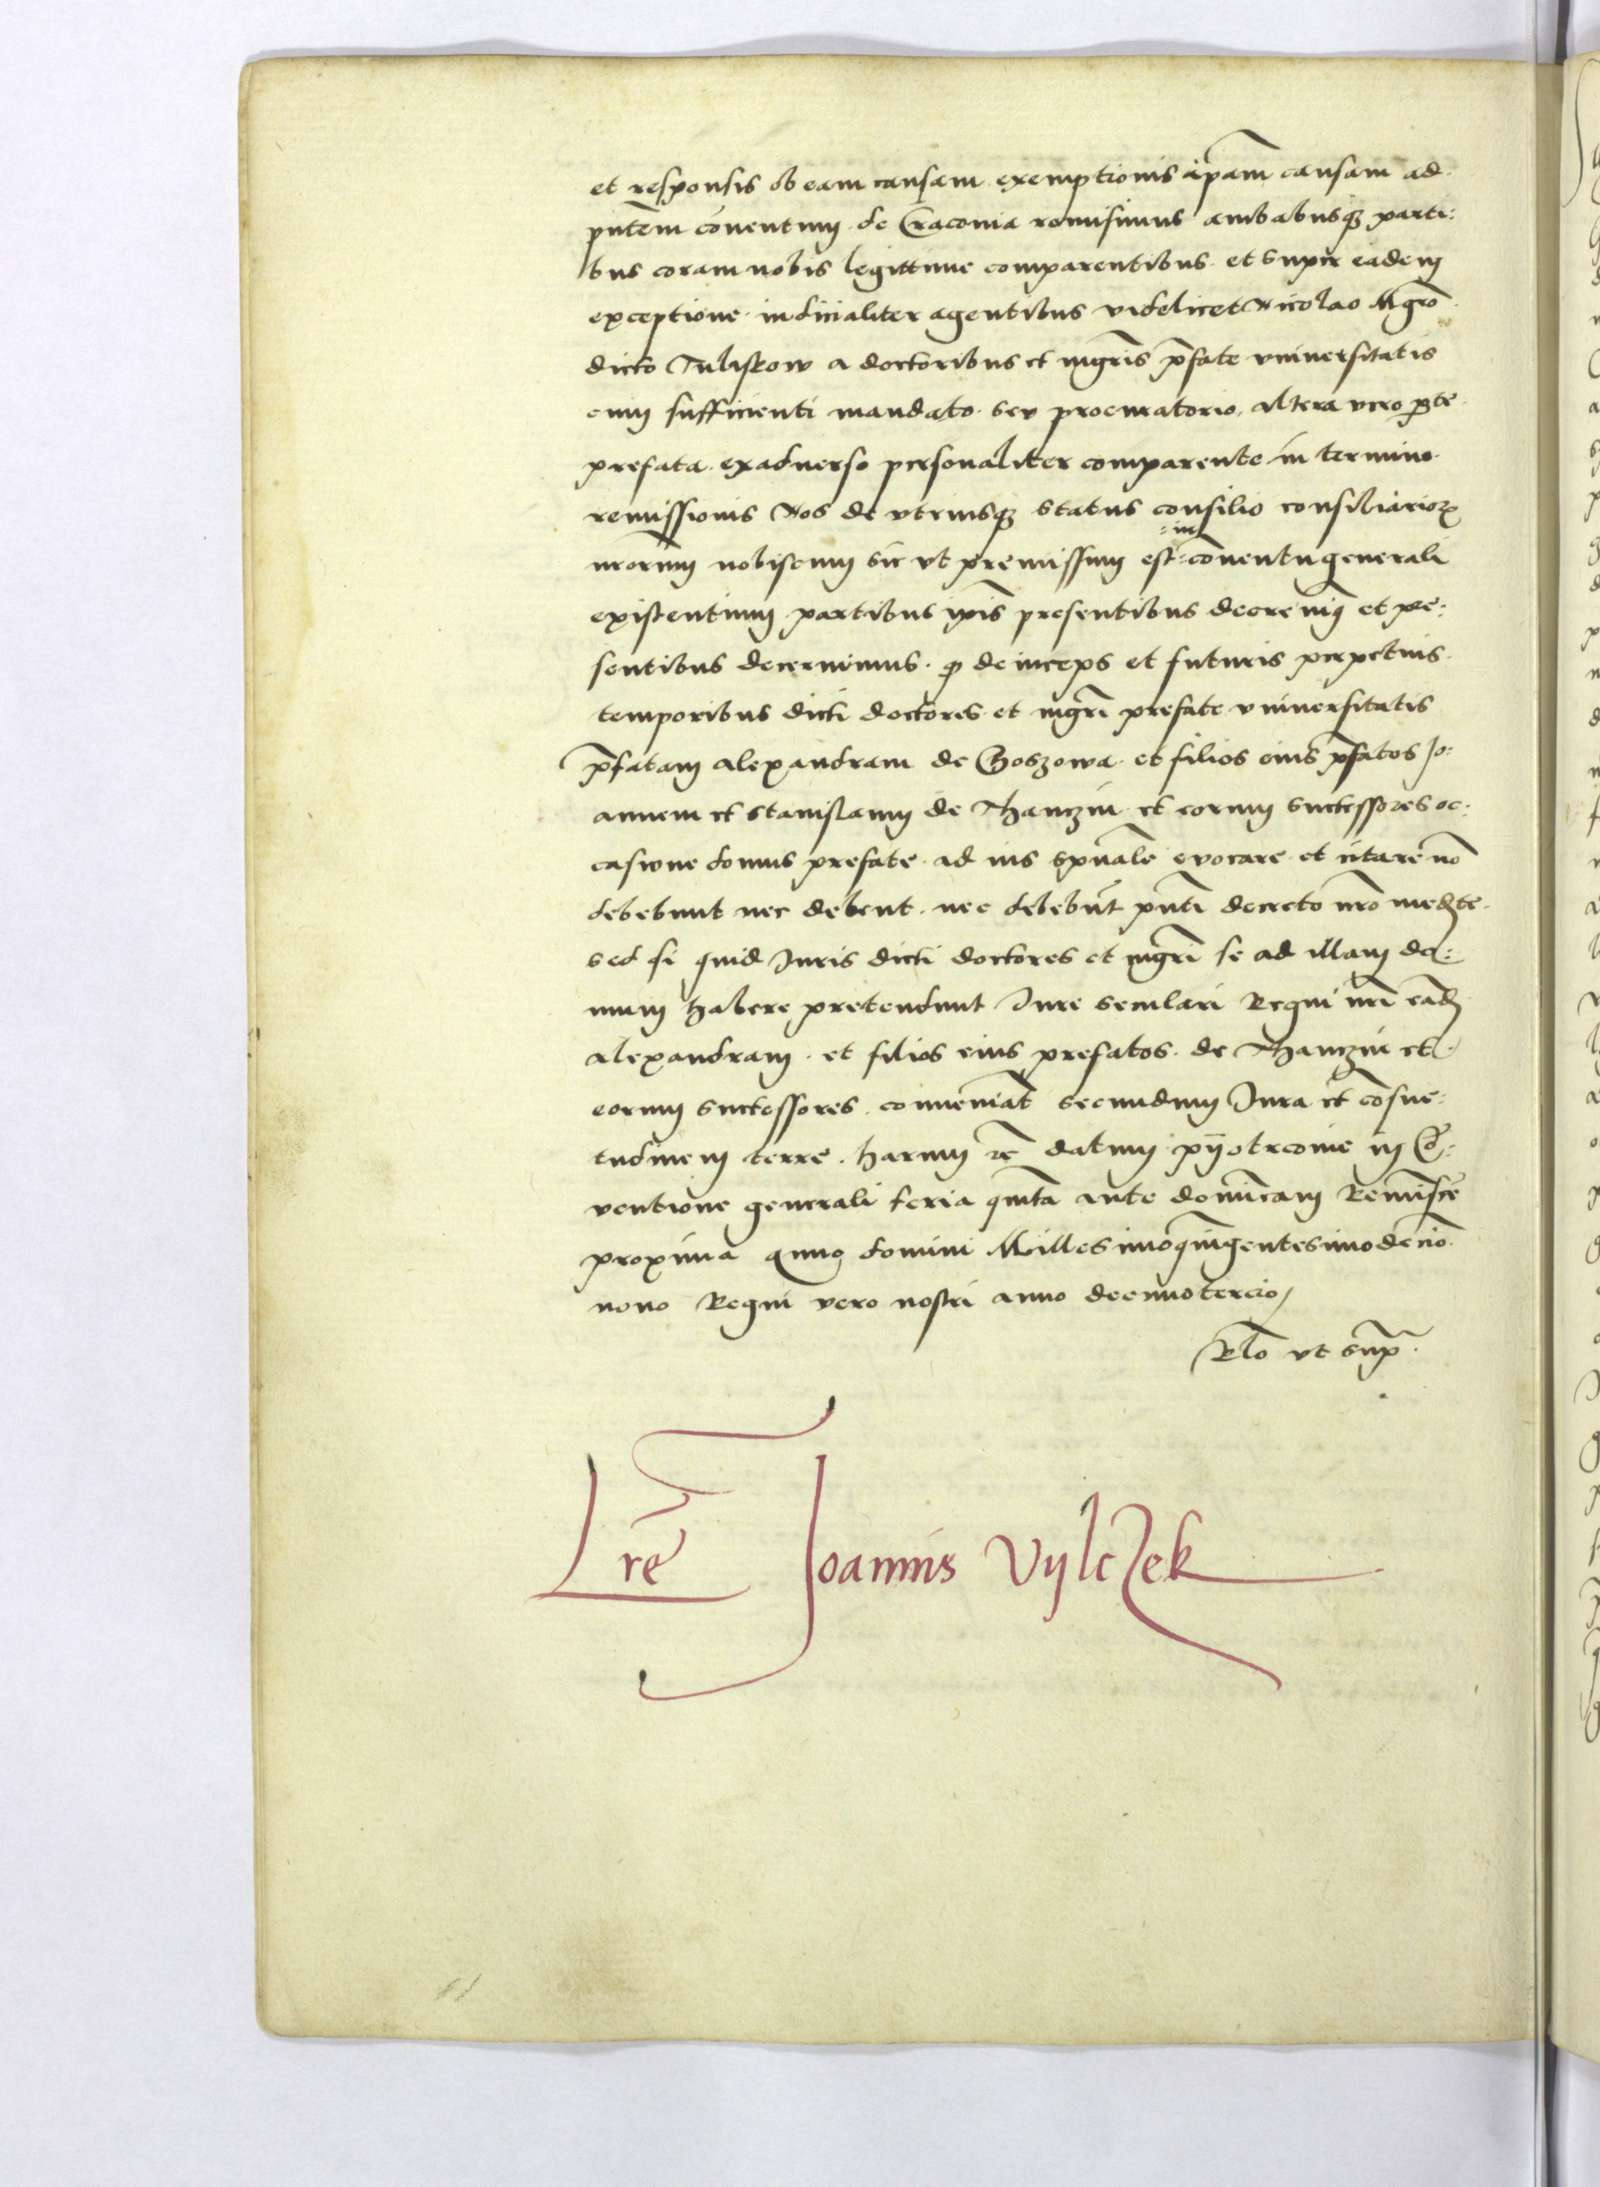 et responsis ob eam causam exemptionis ip̄am causam ad
pn̄tem cōuentum de Cracouia remisimus ambabusq₃ parti:
bus coram nobis legittime comparentibus et super eadem
exceptione iudicialiter agentibus videlicet Nicolao Mgr̄o
dicto Tuliskow a doctoribus et mgr̄is p̄fate vniuersitatis
cum sufficienti mandato seu procuratorio, altera vero p̱te
prefata exaduerso personaliter comparente in termino
remissionis Nos de vtriusq₃ status consilio consiliarioꝝ
nr̄orum nobiscum sic vt premissum est :in: cōuentu generali
existentium partibus ip̄is presentibus decreuim₉ et pre:
sentibus decernimus. ꝙ deinceps et futuris perpetuis
temporibus dicti doctores et mgr̄i prefate vniuersitatis
p̄fatam alexandram de Goszowa et filios eius p̄fatos Jo:
annem et Stanislaum de Thanczin et eorum successores oc:
casione domus prefate ad ius sp̄uale euocare et citare nō
debebunt nec debent. nec debebūt pn̄ti decreto nr̄o med̄te.
sed si quid Juris dicti doctores et mgr̄i se ad illam do:
mum habere pretendunt Jure seculari Regni nr̄i eād̄
alexandram. et filios eius prefatos de Thanczin et
eorum successores. conueniāt secundum Jura et cōsue:
tudinem terre. harum ⁊c̄ datum pyotrcouie in Cō:
uentione generali feria qui̅ta ante dominicam Reminisce̅
proxima anno domini Millesimoqui̅gentesimodecīo
nono Regni vero nostri anno decimotercio,
Rl̄o vt sup̱.
Lr̄e Joannis VylcZek